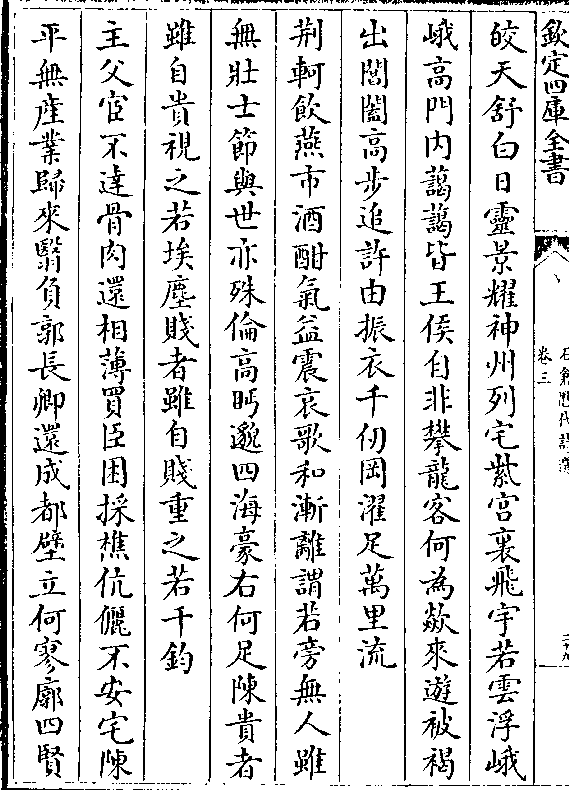 欽定四庫全書
卷三
皎天舒白日靈景耀神州列宅紫宫裏飛宇若雲浮峨
峨高門内藹藹皆王侯自非攀龍客何為歘來遊被褐
出閶闔高步追許由振衣千仞岡濯足萬里流
荆軻飲燕市酒酣氣益震哀歌和漸離謂若旁無人雖
無壯士節與世亦殊倫高眄邈四海豪右何足陳貴者
雖自貴視之若埃塵賤者雖自賤重之若千鈞
主父宦不達骨肉還相薄買臣困採樵伉儷不安宅陳
平無産業歸來翳負郭長卿還成都壁立何寥廓四賢